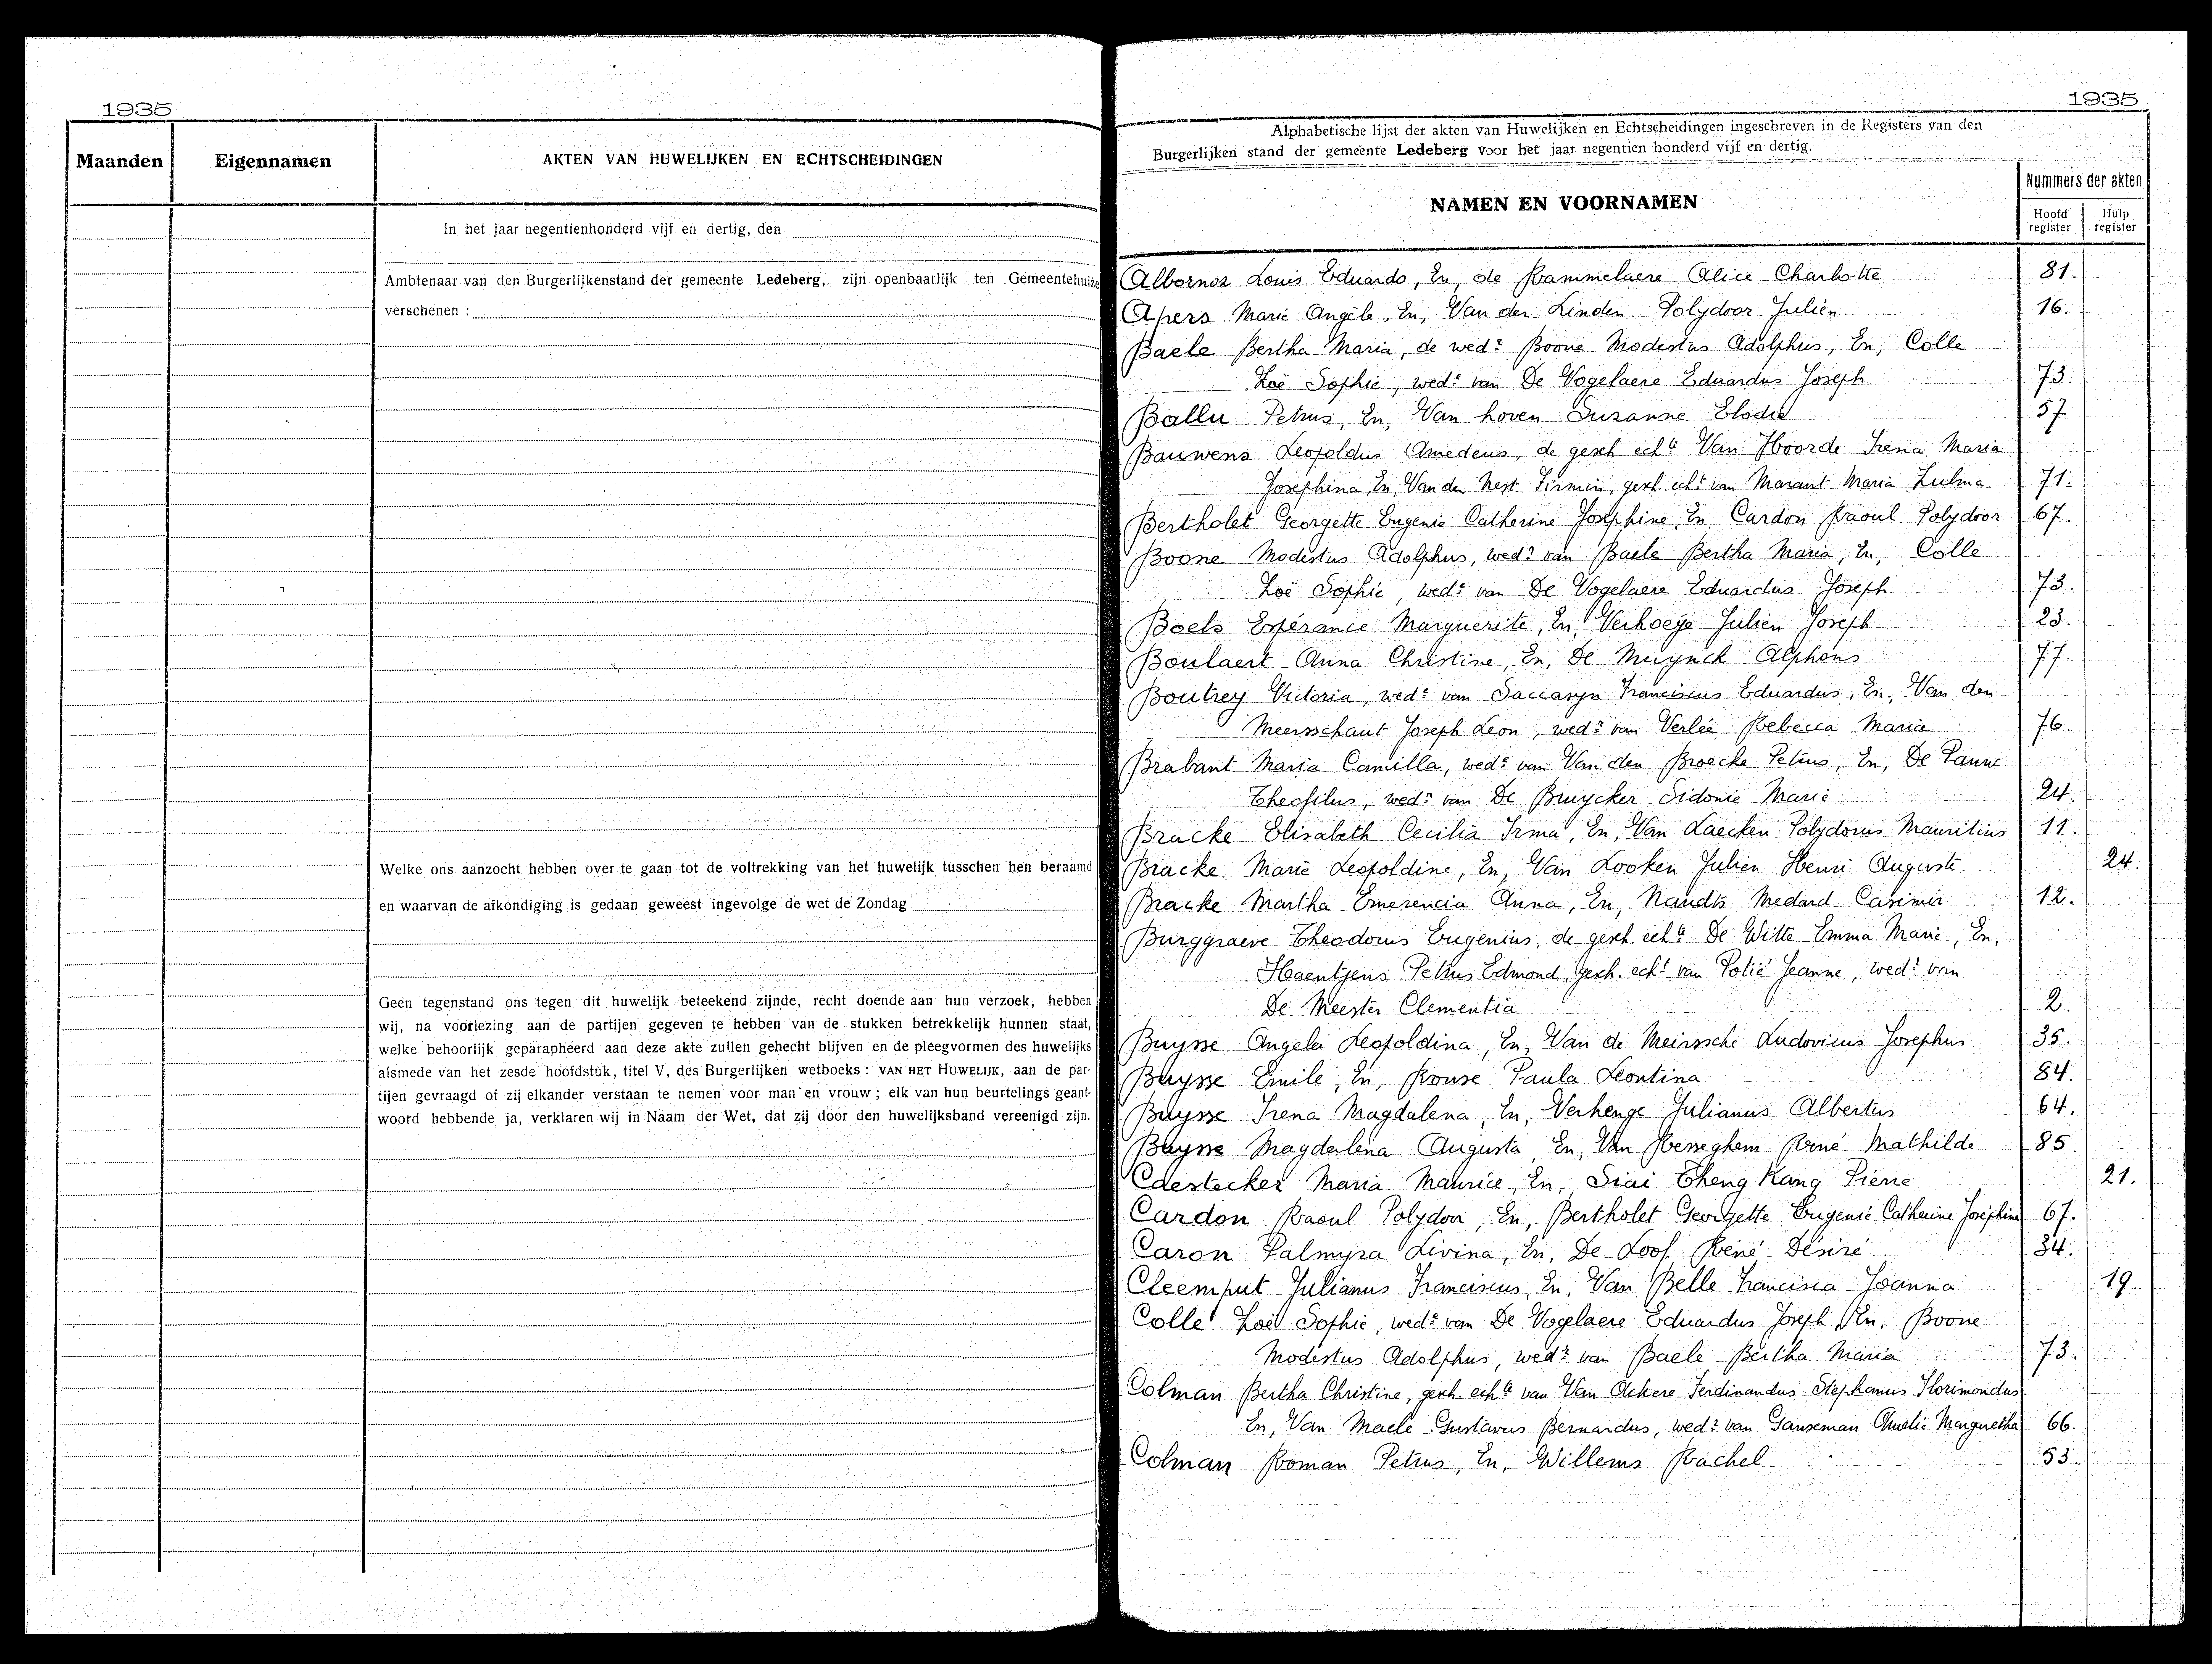 1935
Maanden Eigennamen AKTEN VAN HUWELIJKEN EN ECHTSCHEIDINGEN
In het jaar negentienhonderd vijf en dertig, den
Ambtenaar van den Burgerlijkenstand der gemeente Ledeberg, zijn openbaarlijk ten Gemeentehuize
verschenen :
Welke ons aanzocht hebben over te gaan tot de voltrekking van het huwelijk tusschen hen beraamd
en waarvan de afkondiging is gedaan geweest ingevolge de wet de Zondag
Geen tegenstand ons tegen dit huwelijk beteekend zijnde, recht doende aan hun verzoek, hebben
wij, na voorlezing aan de partijen gegeven te hebben van de stukken betrekkelijk hunnen staat,
welke behoorlijk geparapheerd aan deze akte zullen gehecht blijven en de pleegvormen des huwelijks
alsmede van het zesde hoofdstuk, titel V, des Burgerlijken wetboeks : VAN HET HUWELIJK, aan de par-
tijen gevraagd of zij elkander verstaan te nemen voor man en vrouw ; elk van hun beurtelings geant-
woord hebbende ja, verklaren wij in Naam der Wet, dat zij door den huwelijksband vereenigd zijn.
1935
Alphabetische lijst der akten van Huwelijken en Echtscheidingen ingeschreven in de Registers van den
Burgerlijken stand der gemeente Ledeberg voor het jaar negentien honderd vijf en dertig.
NAMEN EN VOORNAMEN
Nummers der akten
Hoofd register
Hulp register
Albornoz Louis Eduardo, En, de Rammelaere Alice Charlotte 81.
Apers Marie Angèle, En, Van der Linden Polydoor Julien 16.
Baele Bertha Maria, de wed.e Boone Modestus Adolphus, En, Colle
Zoë Sophie, wed.e van De Vogelaere Eduardus Joseph 73.
Ballu Petrus, En, Van hoven Suzanne Elodie 57
Bauwens Leopoldus Amedeus, de gesch. echte Van Hoorde Irena Maria
Josephina, En, Van der Nest Firmin, gesch. echt van Marant Maria Zulma 71.
Bertholet Georgette Eugenie Catherine Josephine, En, Cardon Raoul Polydoor 67.
Boone Modestus Adolphus, wed.r van Baele Bertha Maria, En, Colle
Zoë Sophie, wed.e van De Vogelaere Eduardus Joseph. 73.
Boels Espérance Marguerite, En, Verhoeye Julien Joseph 23.
Boulaert Anna Christine, En, De Muynck Alphons 77.
Boutrey Victoria, wed.e van Saccasyn Franciscus Eduardus, En, Van den
Meersschaut Joseph Leon, wed.r van Verlée Rebecca Maria 76
Brabant Maria Camilla, wed.e van Van den Broecke Petrus, En, De Pauw
Theofilus, wed.r van De Bruycker Sidonie Marie 24.
Bracke Elisabeth Cecilia Irma, En, Van Laecken Polydorus Mauritius 11.
Bracke Marie Leopoldine, En, Van Looken Julien Henri Auguste 24.
Bracke Martha Emerencia Anna, En, Naudts Medard Casimir 12.
Burggraeve Theodorus Eugenius, de gesch. echte De Witte Emma Marie, En,
Haentjens Petrus Edmond, gesch. echt van Polié Jeanne, wed.r van
De Meester Clementia 2.
Buysse Angela Leopoldina, En, Van de Meirssche Ludovicus Josephus 35.
Buysse Emile, En, Rouse Paula Leontina 84.
Buysse Irena Magdalena, En, Verhenge Julianus Albertus 64.
Buysse Magdalena Augusta, En, Van Resseghem René Mathilde 85
Caestecker Maria Maurice, En, Siai Theng Kang Pierre 21.
Cardon Raoul Polydoor, En, Bertholet Georgette Eugenie Catherine Joséphine 67.
Caron Palmyra Livina, En, De Loof René Désiré 34.
Cleemput Julianus Franciscus, En, Van Belle Francisca Joanna 19.
Colle Zoë Sophie, wed.e van De Vogelaere Eduardus Joseph, En, Boone
Modestus Adolphus, wed.r van Baele Bertha Maria 73.
Colman Bertha Christine, gesch. echte van Van Ackere Ferdinandus Stephanus Florimondus
En, Van Maele Gustavus Bernardus, wed.r van Ganseman Amelie Margaretha 66.
Colman Roman Petrus, En, Willems Rachel 53